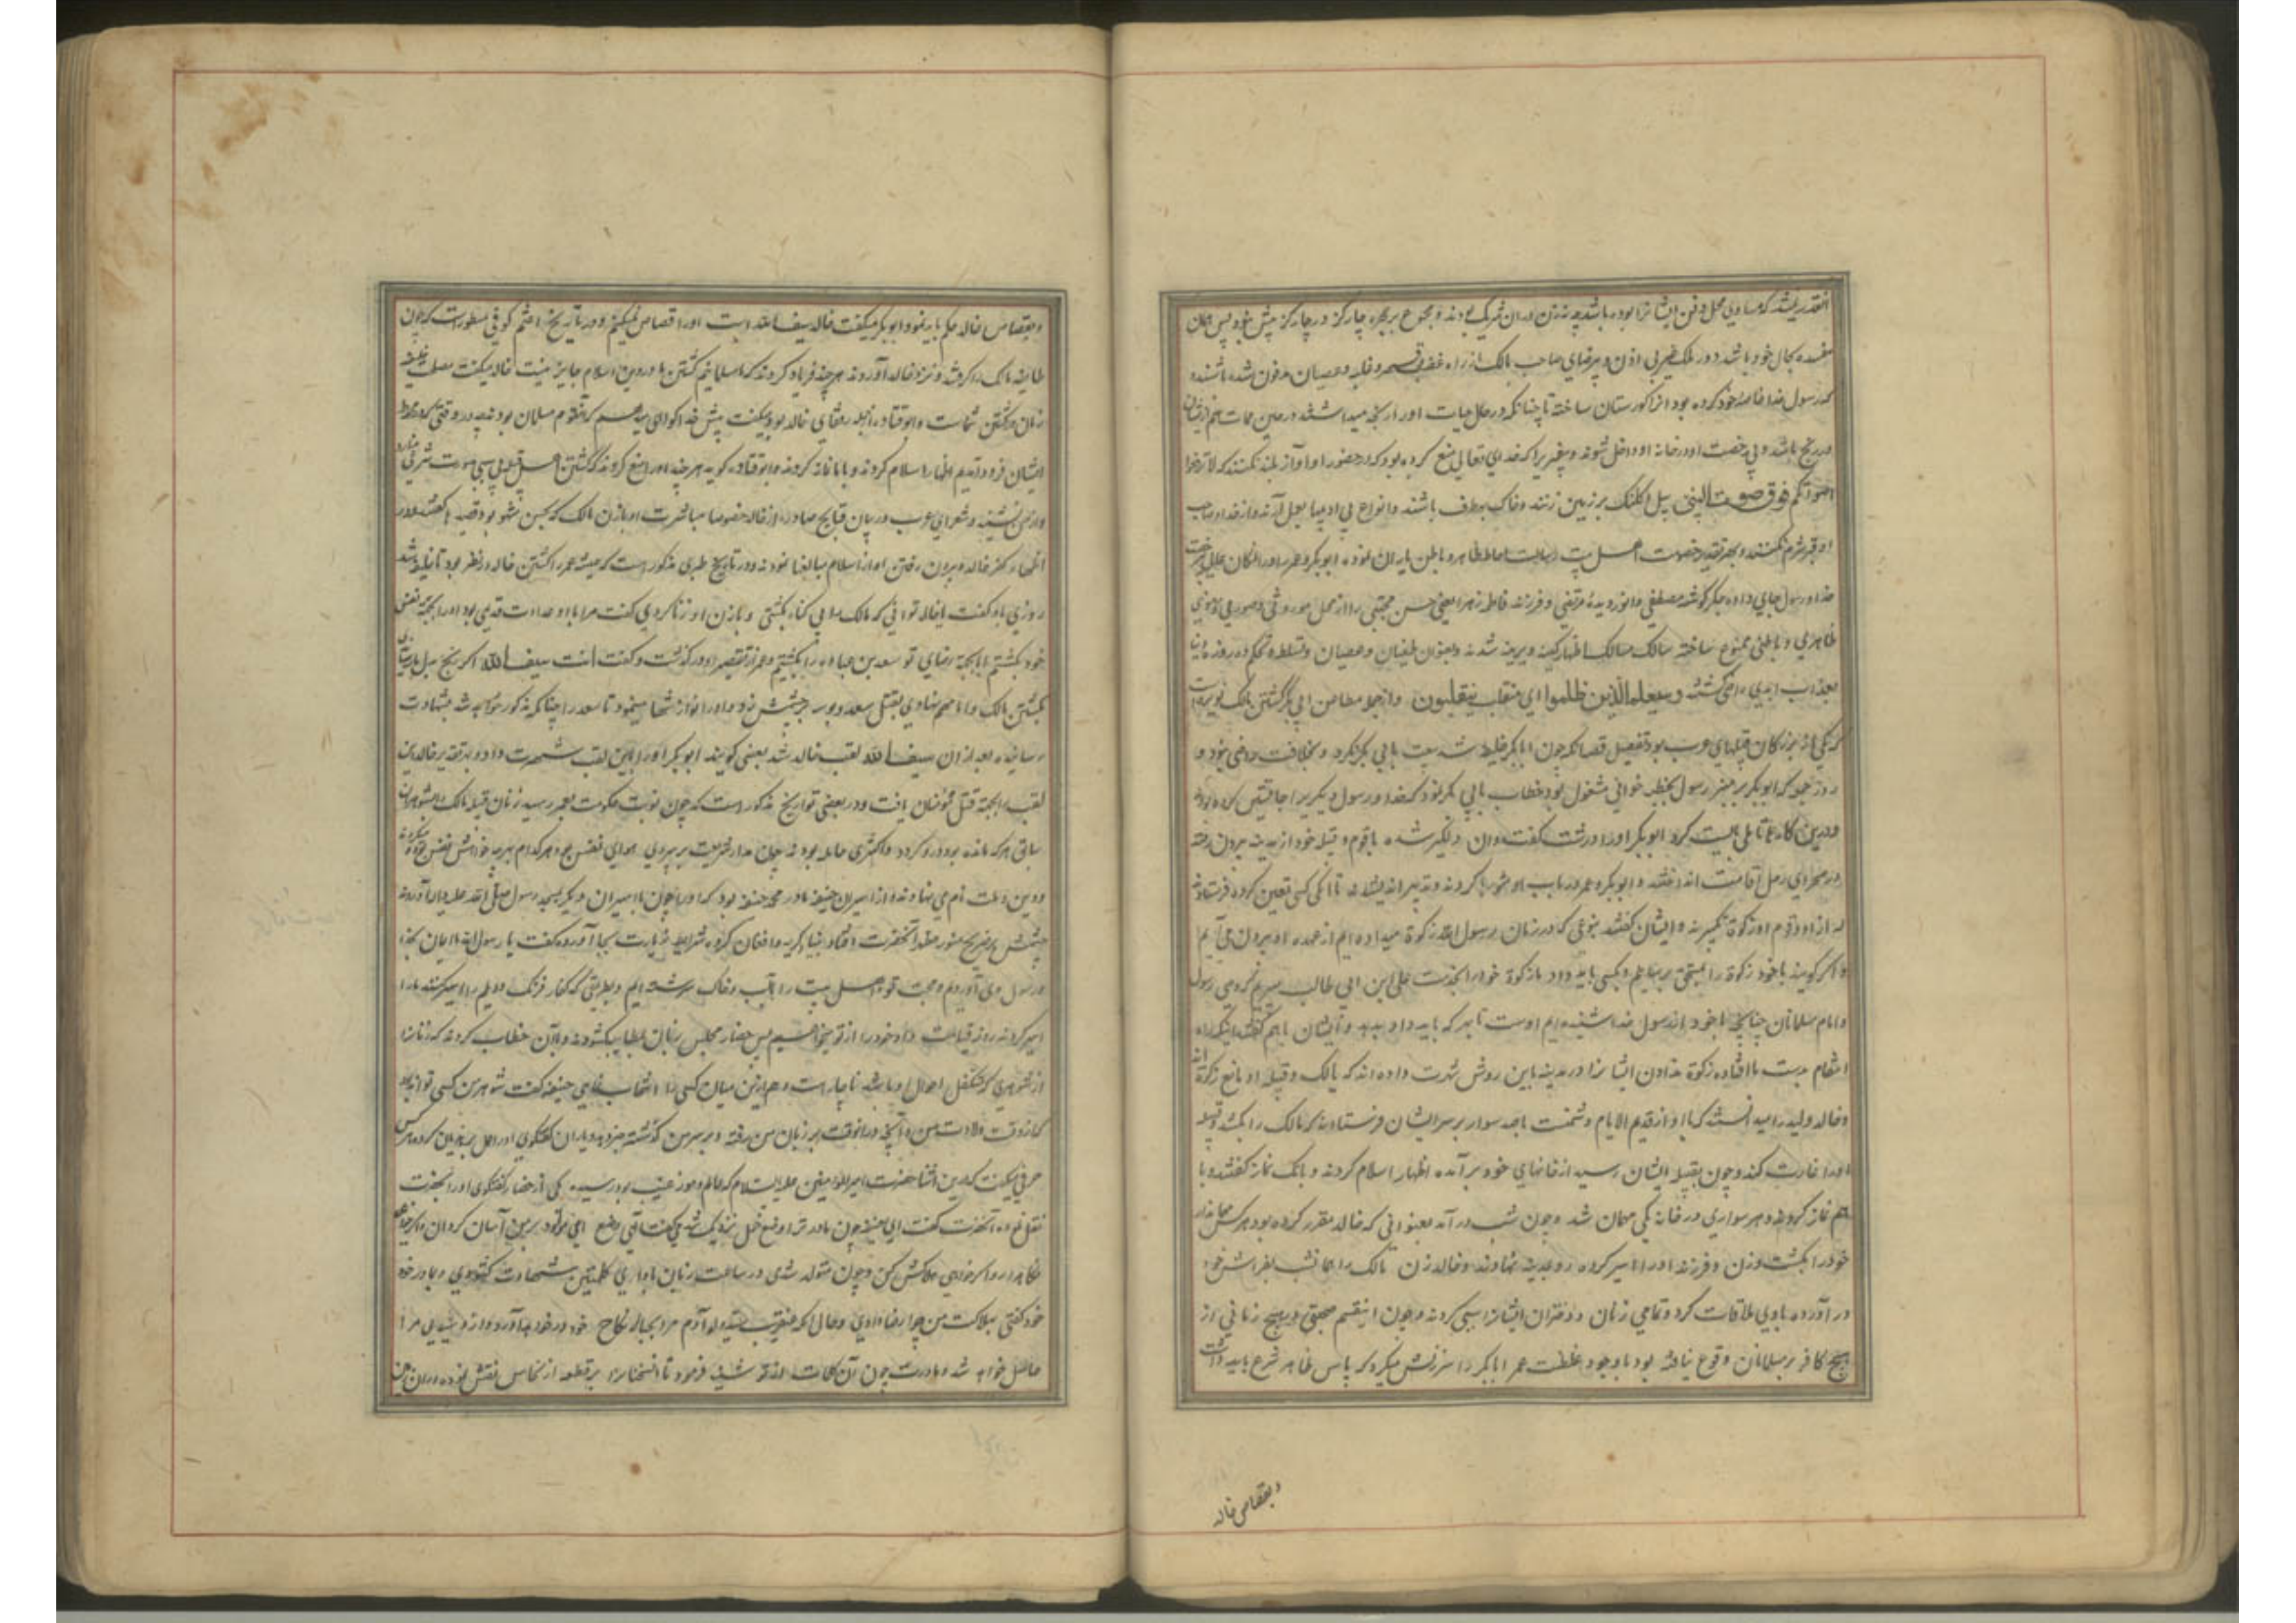 انقدر نمیشد که مساوی محل دفن ایشانرا بوده باشد چه نه زن دران شریک بودند و مجموع بر حجره چار کز در چار کز بیش نبود پس همان
مفسده بحال خود باشد و در ملک غیر بی اذن و بیرضای صاحب مالک از راه غضب و قهر و غلبه و عصیان مدفون شده باشند
که رسول خدا خاصهٔ خود کرده بود انرا کورستان ساخته تا چنانکه در حال حیات اورا رنجه میداشتند در حین ممات هم از ایشان
در رنج باشد و بی رخصت او در خانه او داخل شوند و پیغمبریرا که خدای تعالی منع کرده بود که در حضور او آواز بلند نکنند که لا ترفعوا
اصواتکم فوق صوت النبی بیل و کلنک بر زمین زنند و خاک بهر طرف پاشند و انواع بی ادبیها بعمل آرند و از خدا و صاحب
او قبر شرم نکنند و بهر تقدیر خصومت اهل بیت رسالت احاطهٔ ظاهر و باطن یاران نموده ابوبکر و عمر را در انمکان
خدا و رسول جای داده جکر کوشهٔ مصطفی و نور دیدهٔ مرتضی و فرزند فاطمه زهرا یعنی حسن مجتبی را از محل موروثی
ظاهری و باطنی ممنوع ساخته سالک مسالک اظهار کینهٔ دیرینه شدند و بعنوان طغیان و عصیان و تسلط و تحکم ده روزه دنیا
بعذاب ابدی راضی کشتند وسیعلم الذین ظلموا ای منقلب ینقلبون و از جمله مطاعن ابی بکر کشتن مالک نویره است
که یکی از بزرکان قبیلهای عرب بود تفصیل قصه آنکه چون ابابکر خلیفه شد بیعت با ابی بکر نکرد و بخلافت راضی نبود و
روز جمعه که ابوبکر بر منبر رسول بخطبه خوانی مشغول بود خطاب بابی بکر نمود که خدا و رسول دیکریرا جانشین کرده بود
و درین کار ترا تاملی بایست کرد ابوبکر اورا درشت کفت و ان دلکیر شده با قوم و قبیله خود از مدینه بیرون رفته
در صحرای رمل اقامت انداختند و ابوبکر و عمر در باب او شورها کردند و تدبیر اندیشیدند تا انکه کسی تعیین کرده فرستادند
که از او و قوم او زکوة بکیرند و ایشان کفتند بنوعی که در زمان رسول الله زکوة میداده ایم از عهده او بیرون می آیم
و اکر کویند ما خود زکوة را بمستحق برسانیم و بکسی باید داد ما زکوة خود را بخدمت علی ابن ابی طالب میبریم که وصی رسول
و امام مسلمانان چنانچه ما خود از رسول خدا شنیده ایم اوست تا بهر که باید داد بدهد و ایشان باهم کفتند اینک راه
انتقام بدست ما افتاده زکوة ندادن ایشانرا در مدینه باین روش شهرت داده اند که مالک و قبیله او مانع زکوة اند
و خالد ولید را میدانستند که با او از قدیم الایام دشمنست باصد سوار بر سر ایشان فرستادند که مالک را بکشد و قبیله
اورا غارت کند و چون بقبیله ایشان رسید از خانهای خود بر آمده اظهار اسلام کردند و بانک نماز کفتند و با
هم نماز کردند و هر سواری در خانه یکی مهمان شد و چون شب در آمد بعنوانی که خالد مقرر کرده بود هر کس مهماندار
خود را بکشت و زن و فرزند اورا اسیر کرده رو بمدینه نهادند و خالد زن مالک را همانشب بفراش خود
در آورده با وی ملاقات کرد و تمامی زنان و دختران ایشانرا سبی کردند و چون اینقسم صحبتی در هیچ زمانی از
هیچ کافر بر مسلمانان وقوع نیافته بود با وجود غلظت عمر ابابکر را سرزنش میکرد که پاس ظاهر شرع باید داشت
و بقصاص خالد
و بقصاص خالد حکم باید نمود و ابوبکر میکفت خالد سیف الله است اورا قصاص نمیکنم و در تاریخ اعثم کوفی مسطورست که چون
طایفه مالک را کرفتند و نزد خالد آوردند هر چند فریاد کردند که ما مسلمانیم کشتن ما در دین اسلام جایز نیست خالد میکفت مصلحت خلیفه
زمان در کشتن شماست و ابو قتاده از جمله رفقای خالد بود میکفت پیش خدا کواهی میدهم که انقوم مسلمان بودند چه در وقتی که ما بر محوطه
ایشان فرود آمدیم اظهار اسلام کردند و با ما نماز کردند و ابو قتاده کوید هر چند اورا منع کردند که کشتن اهل قبله بی سبی صورت شرعی ندارد
و از من نشنید و شعرای عرب در بیان قبایح صادره از خالد خصوصا مباشرت او با زن مالک که بحسن مشهور بود قصیدها کفتند و در
اظهار کفر خالد و بیرون رفتن او از اسلام مبالغها نمودند و در تاریخ طبری مذکور است که همیشه عمر را کشتن خالد در نظر بود تا خلیفه شد
روزی باو کفت یا خالد توانی که مالک را بی کناه بکشتی و با زن او زنا کردی کفت مرا با او عداوت قدیمی بود اورا بجهة نفس
خود بکشتم اما بجهة رضای تو سعد بن عباده را بکشتیم و عمر از تقصیر او در کذشت و کفت انت سیف الله
بکشتن مالک و بقتل سعد و بوسه بر جبینش زد و اورا نوازشها مینمود تا سعد را چنانکه مذکور خواهد شد بشهادت
رسانیده بعد از ان سیف الله لقب خالد شد بعضی کویند ابوبکر اورا باین لقب شهرت داد و بر تقدیر خالد این
لقب را بجهة قتل مؤمنان یافت و در بعضی تواریخ مذکور است که چون نوبت حکومت بعمر رسید زنان قبیله مالک را بشوهران
سابق هر که مانده بود رد کرد و اکثری حامله بودند چون مدار شریعت بر پیروی هوای نفس بود هر کدام بهر چه خواهش نفس خود میکردند
و دین و ملت نام می نهادند و از اسیران حنیفه مادر محمد حنفیه بود که اورا چون با اسیران دیکر بمسجد رسول صلی الله علیه و اله آوردند
چشمش بر ضریح منور مطهر آنحضرت افتاد بنیاد کریه و افغان کرده شرایط زیارت بجا آورده کفت یا رسول الله ما ایمان بخدا
و رسول وی آوردیم و محبت تو و اهل بیت را باآب و خاک سرشته ایم و بطریقی که کفار فرنک و دیلم را اسیر کنند ما را
اسیر کردند روز قیامت داد خود را از تو میخواهیم پس حضار مجلس زبان بمطایبه کشودند و باان خطاب کردند که زنانرا
از شوهری که متکفل احوال او باشد ناچار است و هم ازین میان کسی را انتخاب نمای حنیفه کفت شوهر من کسی تواند بود
که از وقت ولادت من و آنچه درانوقت بر زبان من رفته و بر سر من کذشته خبر دهد و یاران کفتکوی اورا حمل بر هذیان کرده هر کس
حرفی میکفت که درین اثنا حضرت امیر المؤمنین علیه السلام که عالم رموز غیب بود رسید یکی از حضار کفتکوی اورا بحضرت
نقل نموده آنحضرت کفت ای حنیفه چون مادر ترا وضع حمل نزدیک شد میکفت آلهی وضع این مولود بر من آسان کردان
نکاهدار و اکر خواهی هلاکش کن و چون متولد شدی در ساعت زبان باداری کلمتین شهادت کشودی و بمادر خود
خود کفتی بهلاکت من چرا رضا دادی و حال آنکه عنقریب سید ولد آدم مرا بحباله نکاح خود در خواهد آورد و از و سید مرا
حاصل خواهد شد و مادرت چون آن کلمات از تو شنید فرمود تا انسخنانرا بر قطعه از نحاس نقش نموده